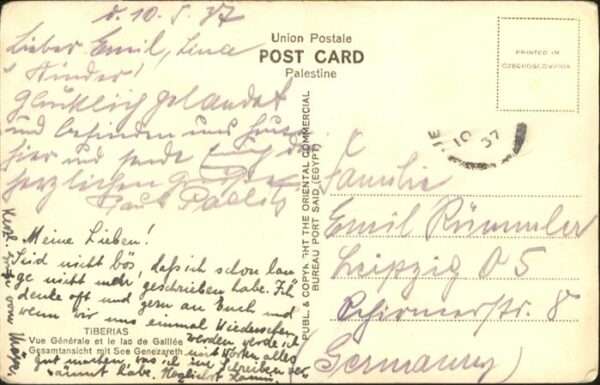 d. 10. 5. 37
Lieber Emil, Lena
Kinder!
Glücklich gelandet
und befinden uns heute
hier und sende Euch die
herzlichen Grüße
Paul
Meine Lieben!
Seid nicht bös, daß ich schon lan
ge nicht mehr geschrieben habe. Ich
denke oft und gern an Euch und
wenn wir uns einmal Wiedersehen
werden werde ich
mit Worten alles
gut machen, was ich im Schreiben ver
säumt habe. Herzlichst
TIBERIAS
Vue Générale et le lac de Galilée
Gesamtansicht mit See Genezareth
Union Postale
POST CARD
Palestine
PUBL. & COPYRIGHT THE ORIENTAL COMMERCIAL
BUREAU PORT SAID (EGYPT)
PRINTED IN
CZECHOSLOVAKIA
10 37
Familie
Emil Rümmler
Leipzig O 5
Schirmerstr. 8
Germany